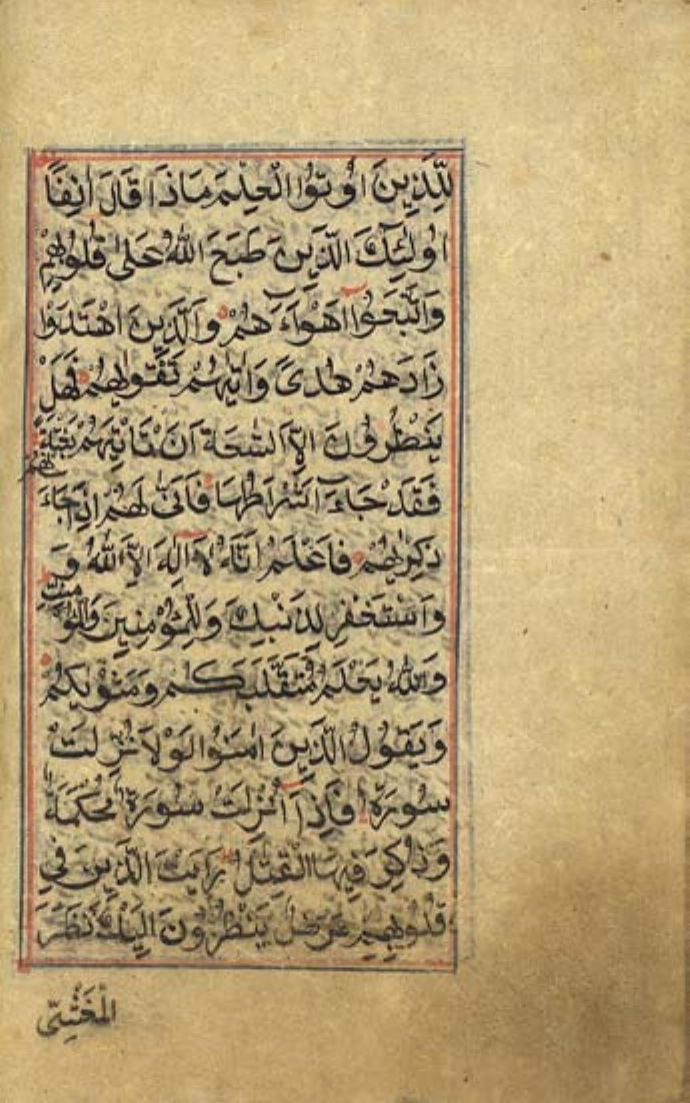 لِلَّذِينَ اُوتُوا الْعِلْمَ مَاذَا قَالَ اٰنِفًا
اُولٰٓئِكَ الَّذِينَ طَبَعَ اللّٰهُ عَلٰى قُلُوبِهِمْ
وَاتَّبَعُوٓا اَهْوَآءَهُمْ وَالَّذِينَ اهْتَدَوْا
زَادَهُمْ هُدًى وَاٰتٰيهُمْ تَقْوٰيهُمْ فَهَلْ
يَنْظُرُونَ اِلَّا السَّاعَةَ اَنْ تَاْتِيَهُمْ بَغْتَةً
فَقَدْ جَآءَ اَشْرَاطُهَا فَاَنّٰى لَهُمْ اِذَا جَآءَتْهُمْ
ذِكْرٰيهُمْ فَاعْلَمْ اَنَّهُ لَآ اِلٰهَ اِلَّا اللّٰهُ وَ
وَاسْتَغْفِرْ لِذَنْبِكَ وَلِلْمُؤْمِنِينَ وَالْمُؤْمِنَاتِ
وَاللّٰهُ يَعْلَمُ مُتَقَلَّبَكُمْ وَمَثْوٰيكُمْ
وَيَقُولُ الَّذِينَ اٰمَنُوا لَوْلَا نُزِّلَتْ
سُورَةٌ فَاِذَآ اُنْزِلَتْ سُورَةٌ مُحْكَمَةٌ
وَذُكِرَ فِيهَا الْقِتَالُ رَاَيْتَ الَّذِينَ فِي
قُلُوبِهِمْ مَرَضٌ يَنْظُرُونَ اِلَيْكَ نَظَرَ
الْمَغْشِيِّ